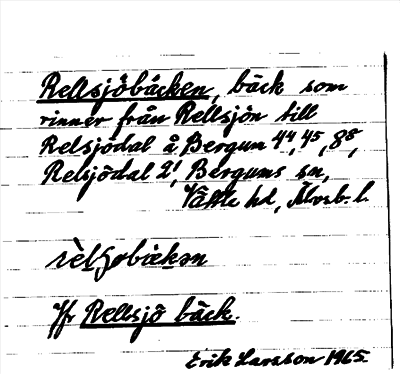 Rellsjöbäcken, bäck som
rinner från Rellsjön till
Relsjödal å Bergum 4⁴, 4⁵, 8⁵,
Relsjödal 2¹, Bergums sn,
Vättle hd, Älvsb. l.
Jfr Rellsjö bäck.
Erik Larsson 1965.